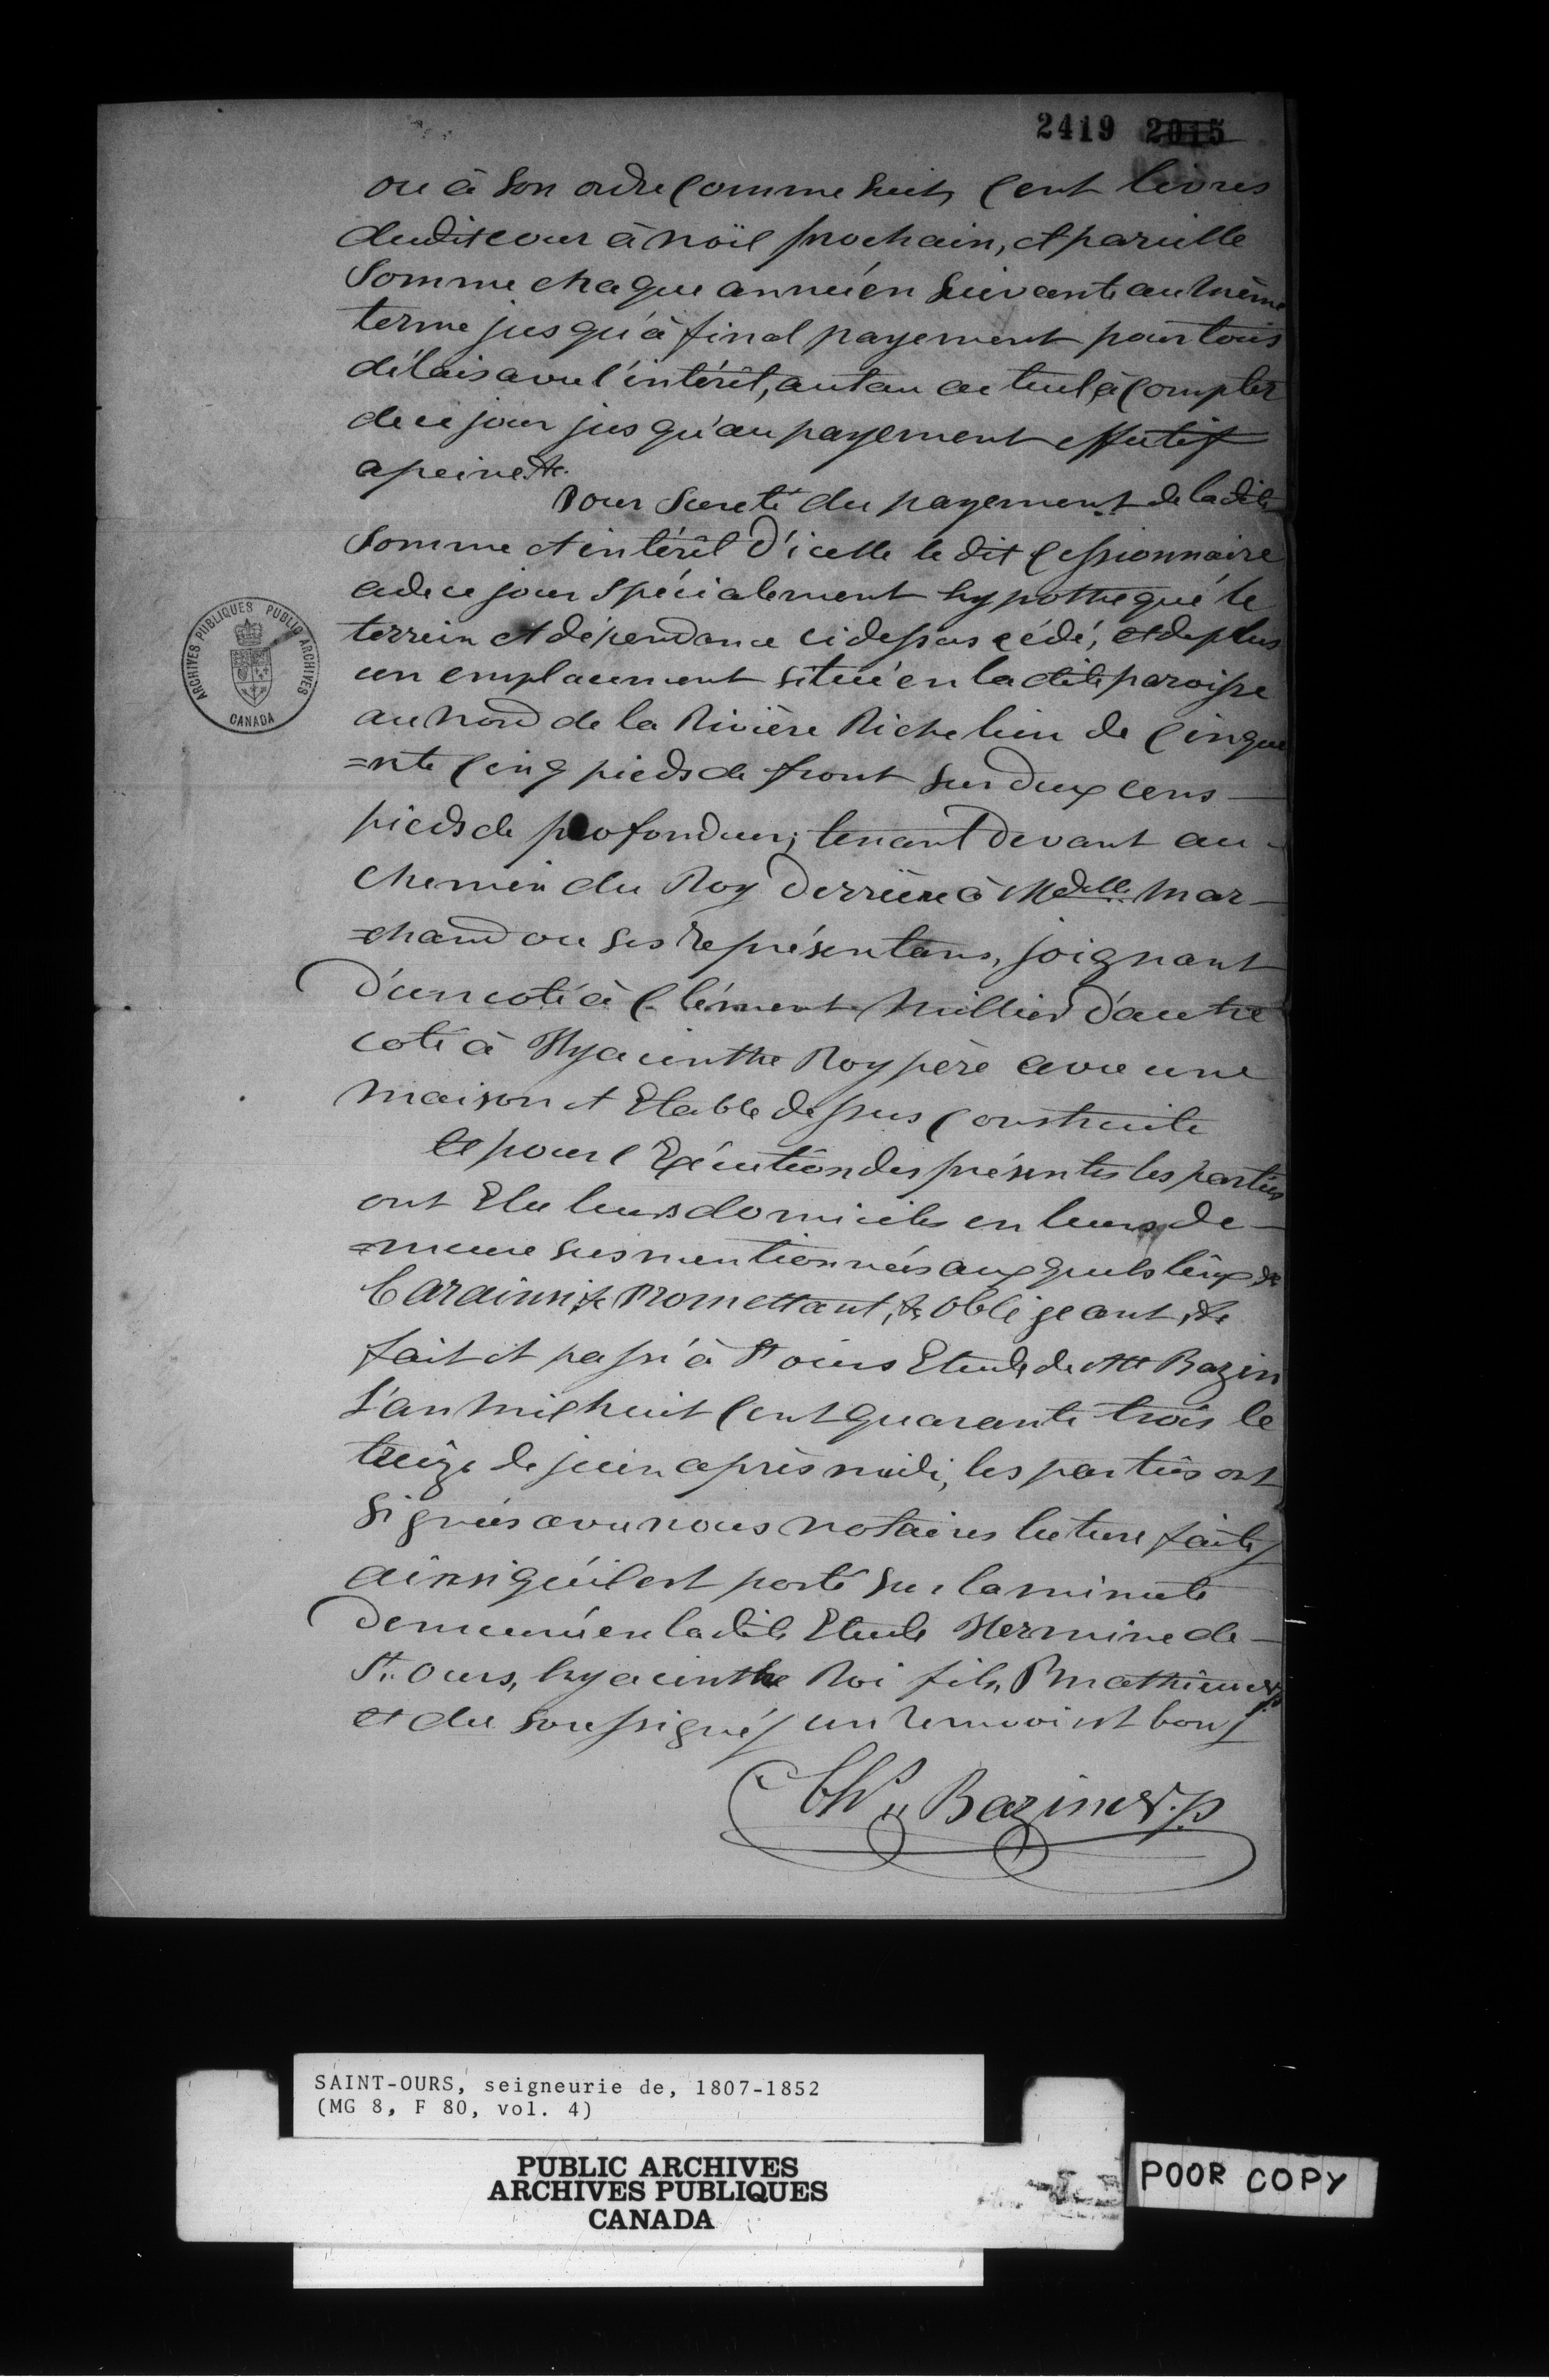 2419 2015
ou à son ordre comme suit, Cent livres
dudit cour à noël prochain, et pareille
Somme chaque année en suivante au même
terme jusqu'à final payement pour tous
délais avec l'intérêt, au tau actuel, à compter
de ce jour jusqu'au payement effectif
a peine &c.
Pour sureté du payement de la dite
Somme et intérêt d'icelle le dit Cessionnaire
a de ce jour spécialement hypothequé le
terrein et dépendance ci dessus cédé, et de plus
un emplacement situé en la dite paroisse
au nord de la Rivière Richelieu de Cinqua
=nte Cinq pieds de front sur deux cens —
pieds de profondeur; tenant devant au -
Chemin du Roy derrière à Mdelle Mar —
=chand ou ses représentans, joignant
d'un coté à Clément Millier d'autre
coté à Hyacinthe Roy père avec une
maison et Etable dessus Construite
Et pour l'Exécution des présentes les parties
ont Elu leurs domiciles en leurs de —
=meure susmentionnées auxquels lieux &c
Car ainsi &c Promettant, &c Obligeant, &c
fait et passé à St Ours Etude de Mtt Bazin
L'an Mil huit Cent quarante trois le
treize de juin après midi, les parties ont
Signées avec nous notaires lecture faite/
ainsi qu'il est porté sur la minute
demeurée en la dite Etude Hermine de —
St. Ours, hyacinthe Roi fils, P Mathieu N.P.
et du soussigné/ un renvoi est bon/
Chs. Bazin N.P.
ARCHIVES PUBLIQUES PUBLIC ARCHIVES
CANADA
SAINT-OURS, seigneurie de, 1807-1852
(MG 8, F 80, vol. 4)
PUBLIC ARCHIVES
ARCHIVES PUBLIQUES
CANADA
POOR COPY